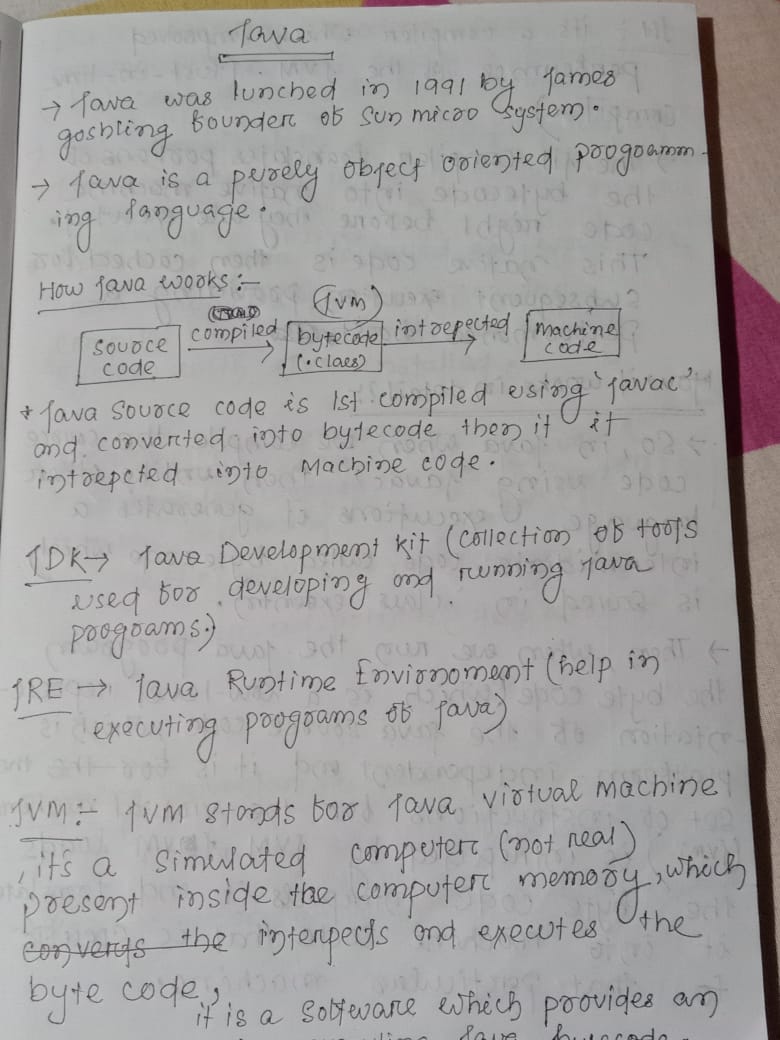 Java
→ Java was lunched in 1991 by James
goshling founder of Sun micro system.
→ Java is a purely object oriented programm-
ing language.
How Java works:-
(JVM)
source code compiled bytecode (.class) intrepected machine code
* Java source code is 1st compiled using 'javac'
and converted into bytecode then it it
intrepcted into Machine code.
JDK→ Java Development kit (collection of tools
used for developing and running java
programs.)
JRE → Java Runtime Envirnoment (help in
executing programs of java)
JVM:- JVM stands for Java virtual machine
, it's a simulated computer (not real)
present inside the computer memory, which
converts the interpects and executes the
byte code,
it is a software which provides an
java bytecode.